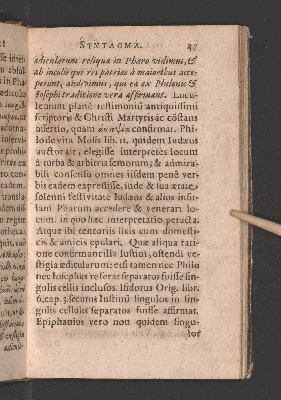 SYNTAGMA. 47
ædicularum reliqua in Pharo vidimus, &
ab incolis qui res patrias à maioribus acce-
perunt, audivimus, qui ea ex Philonis &
Josephi traditione vera affirmant. Lucu-
lentum planè testimonium antiquissimi
scriptoris & Christi Martyris ac cõstans
assertio, quam confirmat. Phi-
lo de vita Mosis lib. 11. quidem Iudæus
auctorale, elegisse interpretes locum
à turba & arbitris semotum; & admira-
bili consensu omnes iisdem penè ver-
bis eadem expressisse, inde & sua ætate,
solenni festivitate Iudæos & alios insu-
lam Pharum accedere & venerari lo-
cum, in quo hæc interpretatio peracta.
Atque ibi tentoriis fixis cum domesti-
cis & amicis epulari. Quæ aliqua ratio-
ne confirmant illa Iustini, ostendi ve-
stigia ædicularum: etsi tamen nec Philo
nec Iosephus referat separatos fuisse sin-
gulis cellis inclusos. Isidorus Orig. libr.
6. cap. 3. secutus Iustinū singulos in sin-
gulis cellulis separatos fuisse affirmat.
Epiphanius vero non quidem singu-
los